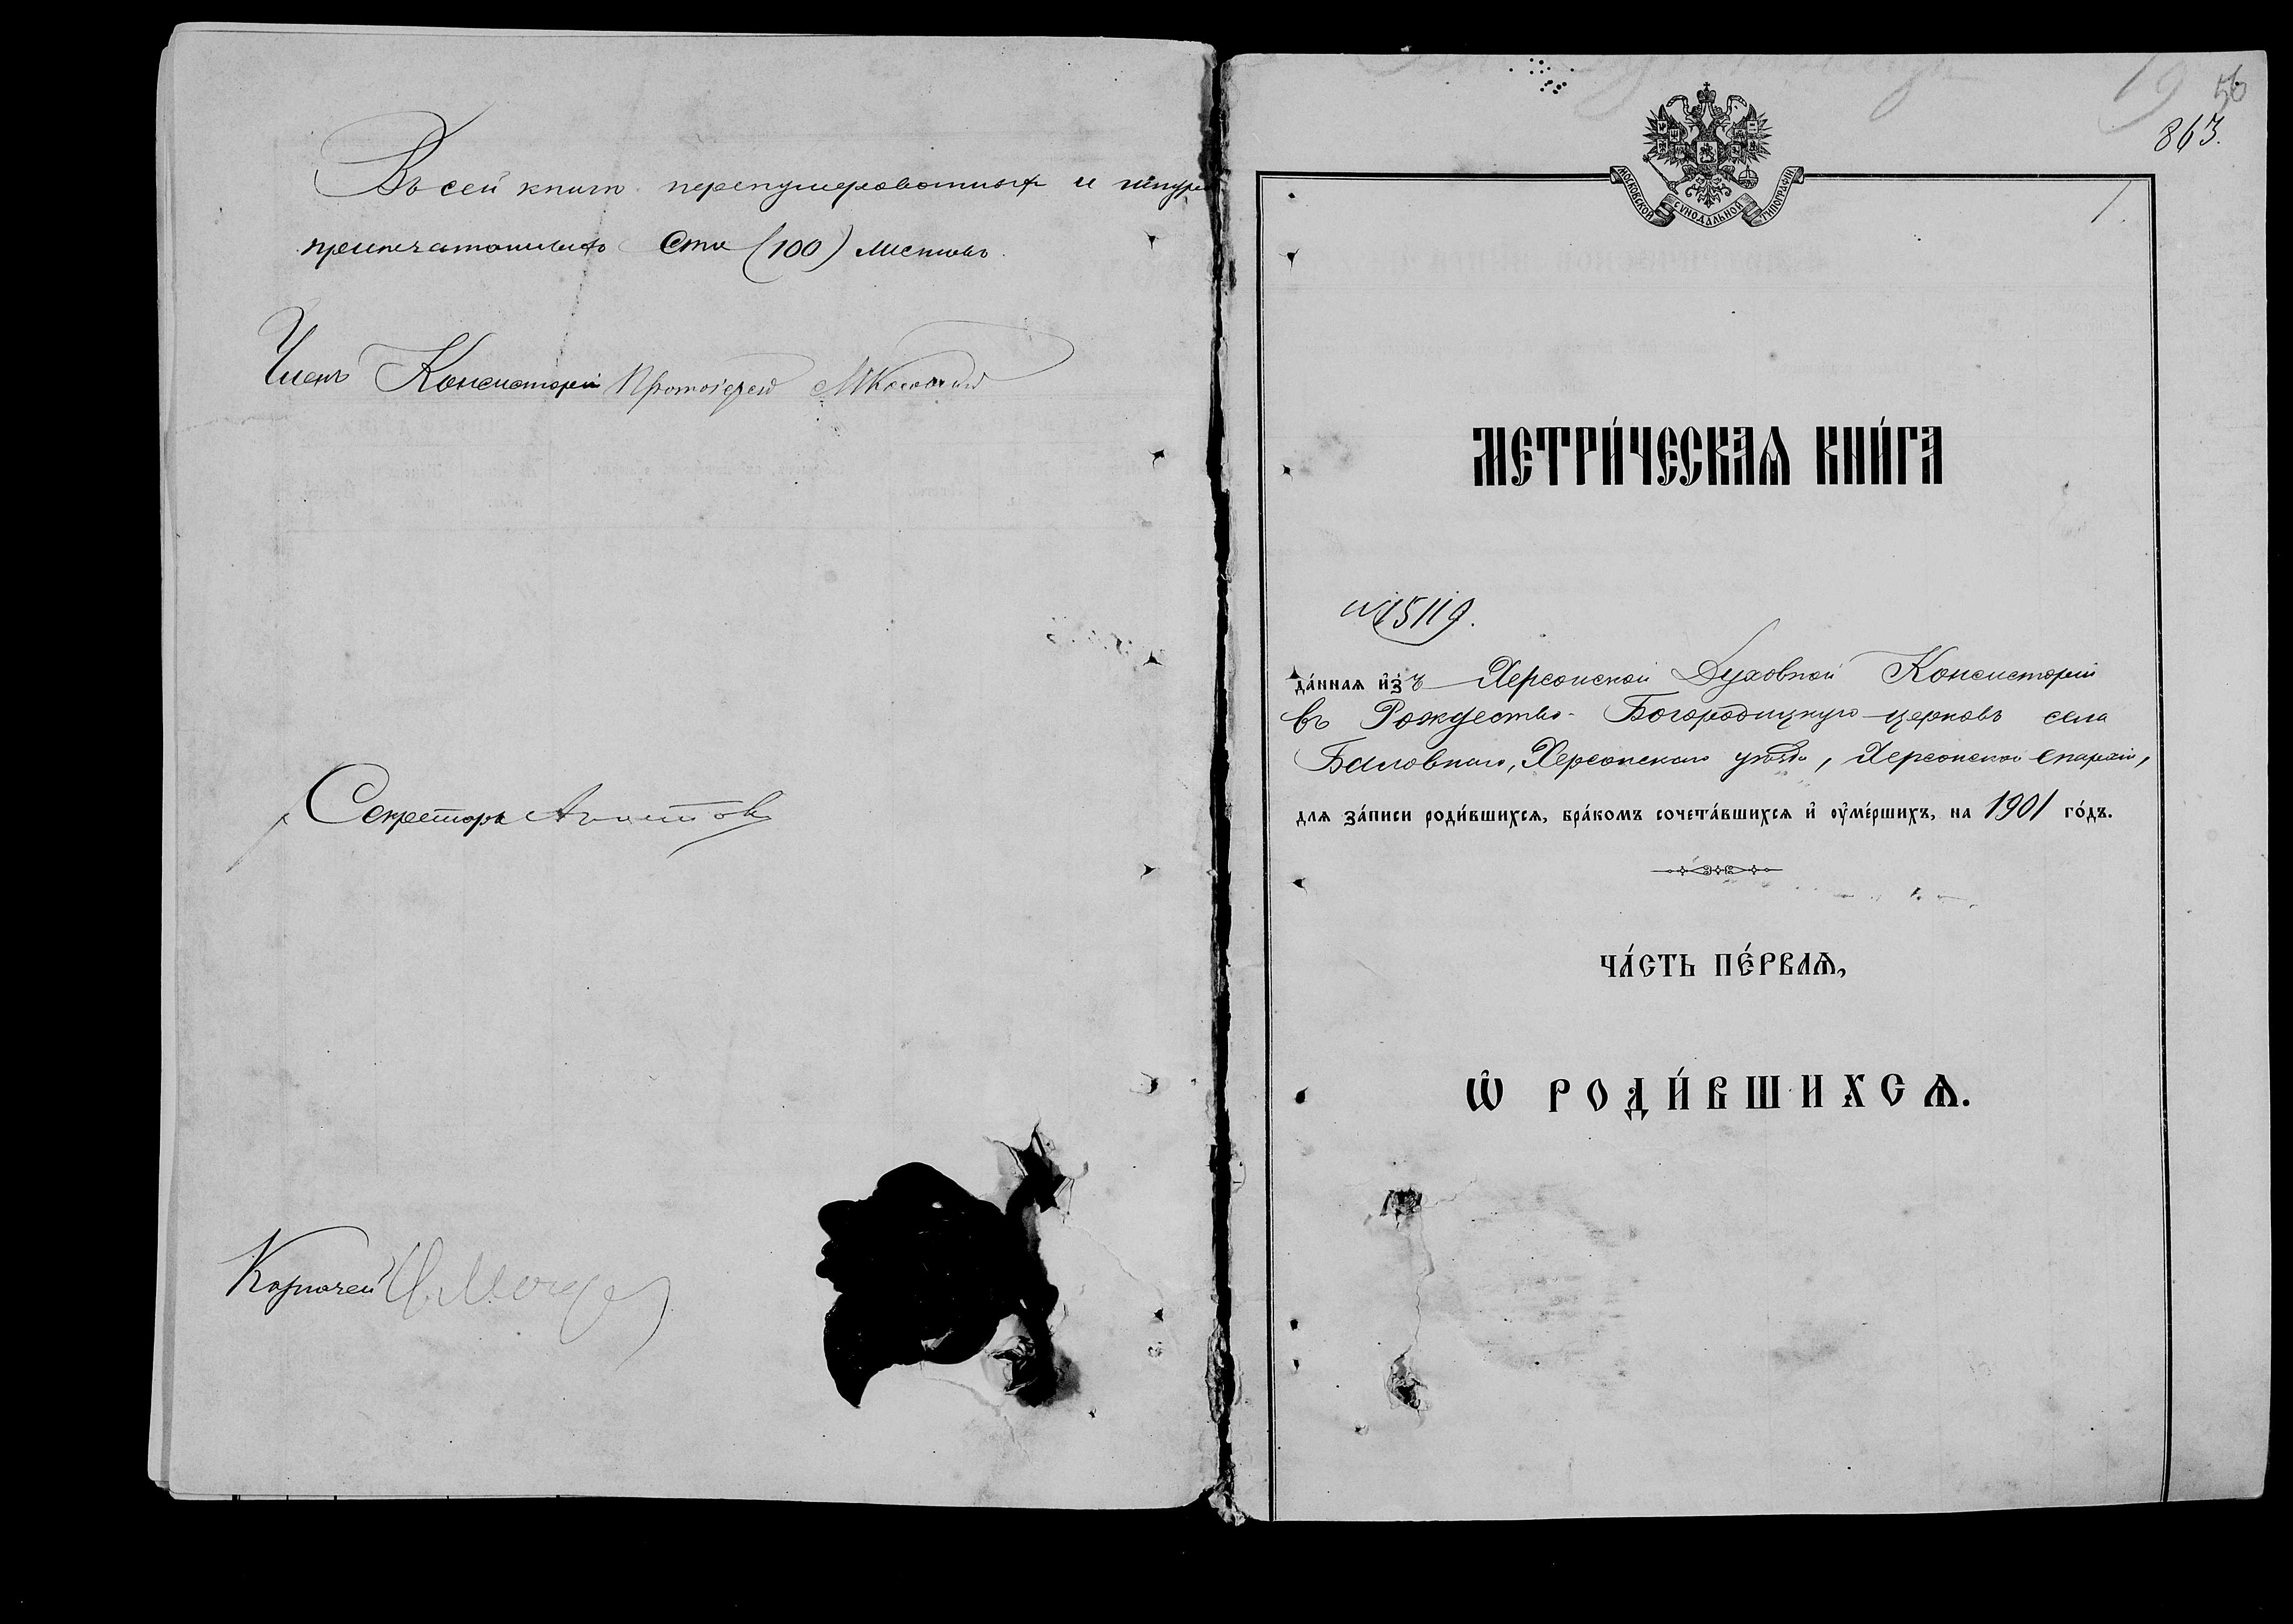 Въ сей книгѣ перенумерованныхъ и шнур
припечатанныхъ Сто (100) листовъ.
Членъ Консисторіи Протоіерей
Секретарь
Казначей
56
863.
МОСКОВСКОЙ СѴНОДАЛЬНОЙ ТИПОГРАФІИ
1.
МЕТРИ́ЧЕСКАѦ КНИ́ГА
№15119.
да́нная и҆зъ Херсонской Духовной Консисторіи
въ Рождество-Богородицкую церковь села
Баловнаго, Херсонскаго уѣзда, Херсонской епархіи,
для за́писи роди́вшихся, бра́комъ сочета́вшихся и҆ оу҆ме́ршихъ, на 1901 го́дъ.
ЧА́СТЬ ПЕ́РВАѦ,
Ѽ РОДИ́ВШИХСѦ.